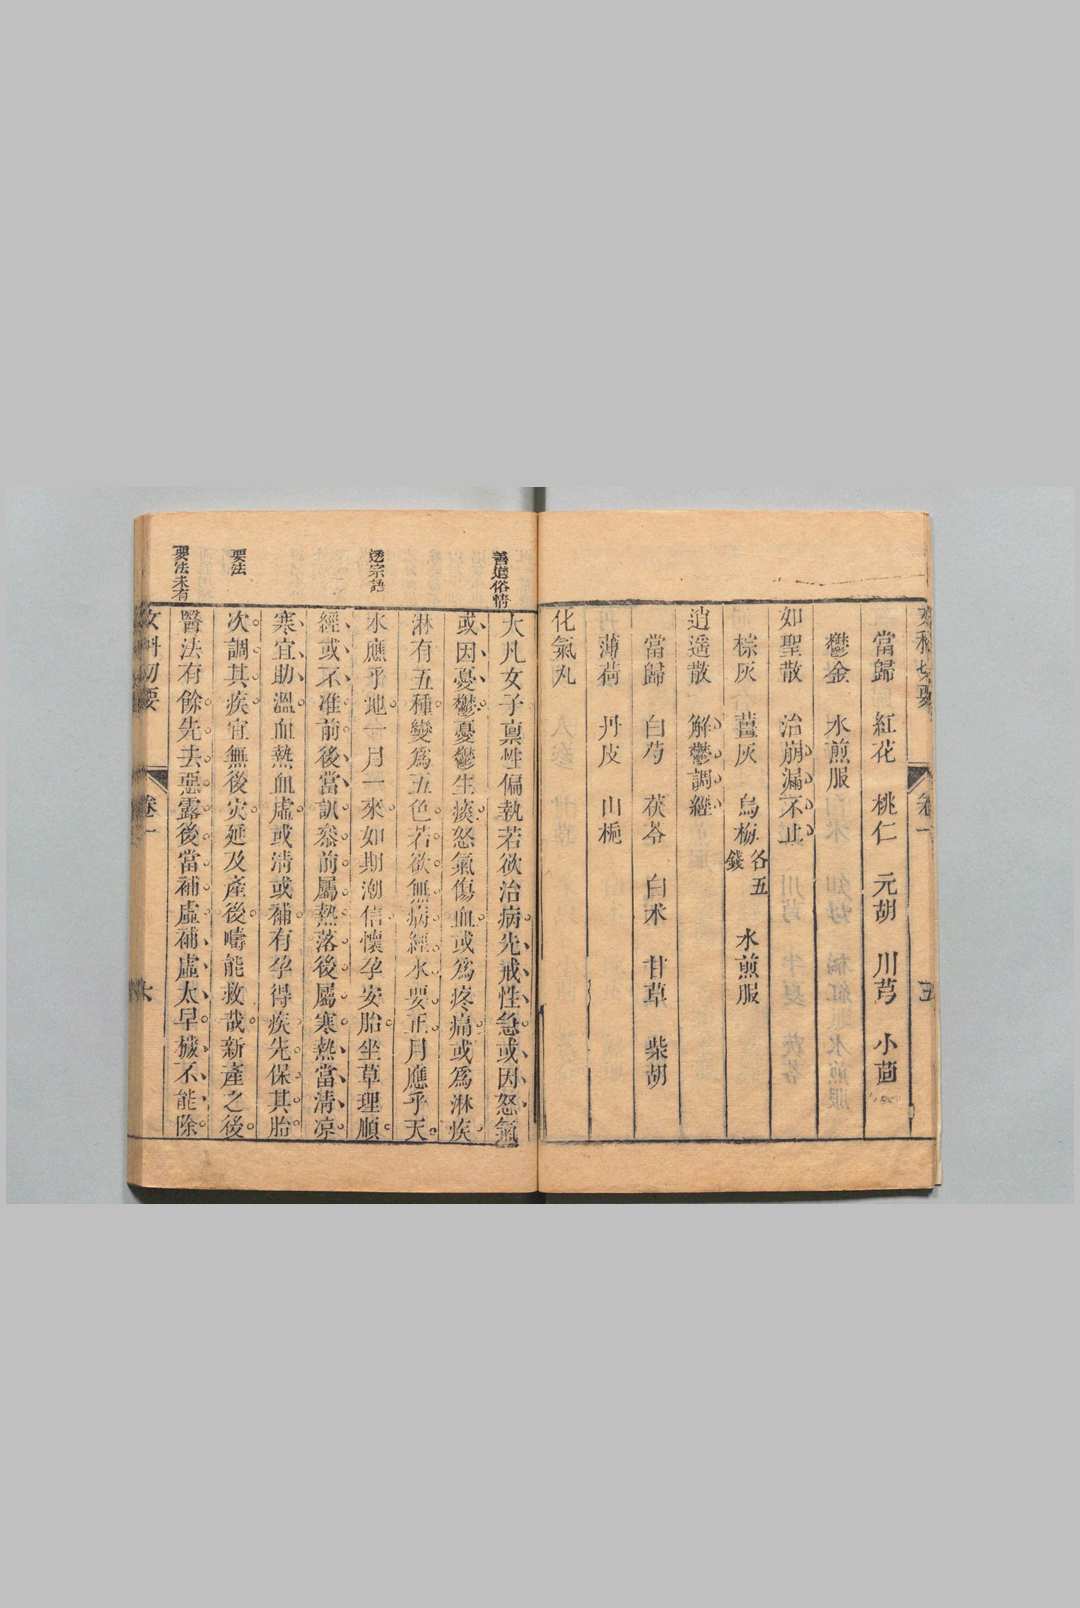 當歸 紅花 桃仁 元胡 川芎 小茴
鬱金 水煎服
如聖散 治崩漏不止
棕灰 薑灰 烏梅 各五錢 水煎服
逍遥散 解鬱調經
當歸 白芍 茯苓 白术 甘草 柴胡
薄荷 丹皮 山梔
化氣丸
卷一 五
善道俗情
大凡女子禀性偏執若欲治病先戒性急或因怒氣
或因憂鬱憂鬱生痰怒氣傷血或爲疼痛或爲淋疾
淋有五種變爲五色若欲無病經水要正月應乎天
透宗語
水應乎地一月一來如期潮信懷孕安胎坐草理順
經或不准前後當訊叅前屬熱落後屬寒熱當清凉
寒宜助溫血熱血虛或清或補有孕得疾先保其胎
要法
次調其疾宜無後灾延及產後疇能救哉新產之後
要法未有
醫法有餘先去惡露後當補虛補虛太早穢不能除
女科切要 卷一 六